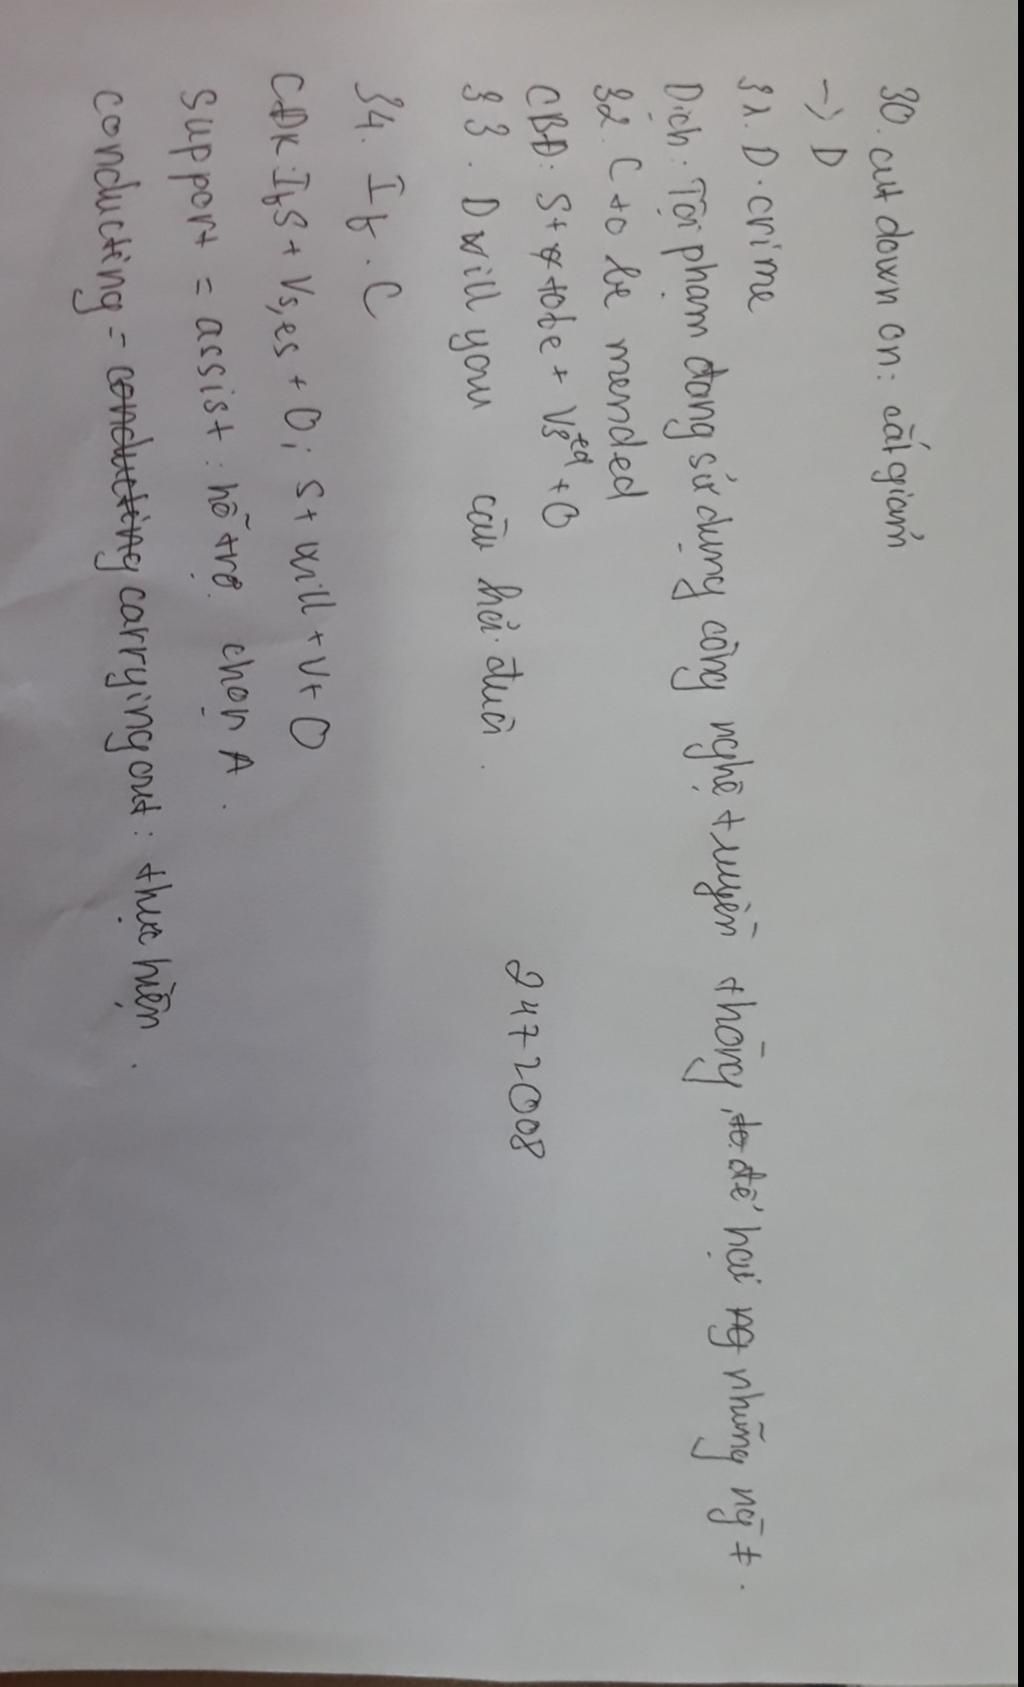 30. cut down on: cắt giảm
-> D
31. D. crime
Dịch: Tội phạm đang sử dụng công nghệ truyền thông, để hại những ng ≠.
32. C to be mended
CBĐ: S + tobe + V3 ed + O
33. D will you câu hỏi đuôi.
34. If. C
CĐK If S + Vs,es + O; S + will + V + O
Support = assist: hỗ trợ chọn A.
Conducting = carrying out: thực hiện.
2472008